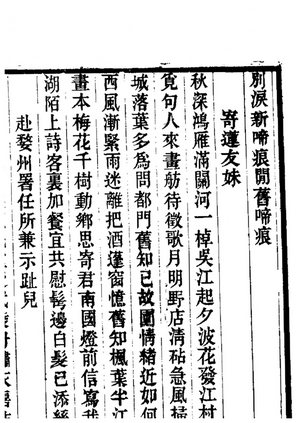 別淚新啼痕開舊啼痕
寄蓮友妹
秋深鴻雁滿關河一棹吳江起夕波花發江村
覓句人來畫舫待徵歌月明野店清砧急風掃
城落葉多為問都門舊知己故園情緒近如何
西風漸緊雨迷離把酒蓬窗憶舊知楓葉半江
畫本梅花千樹動鄉思寄君南國燈前信寫我
湖陌上詩客裏加餐宜共慰鬂邊白髮已添絲
赴婺州署任所兼示趾兒